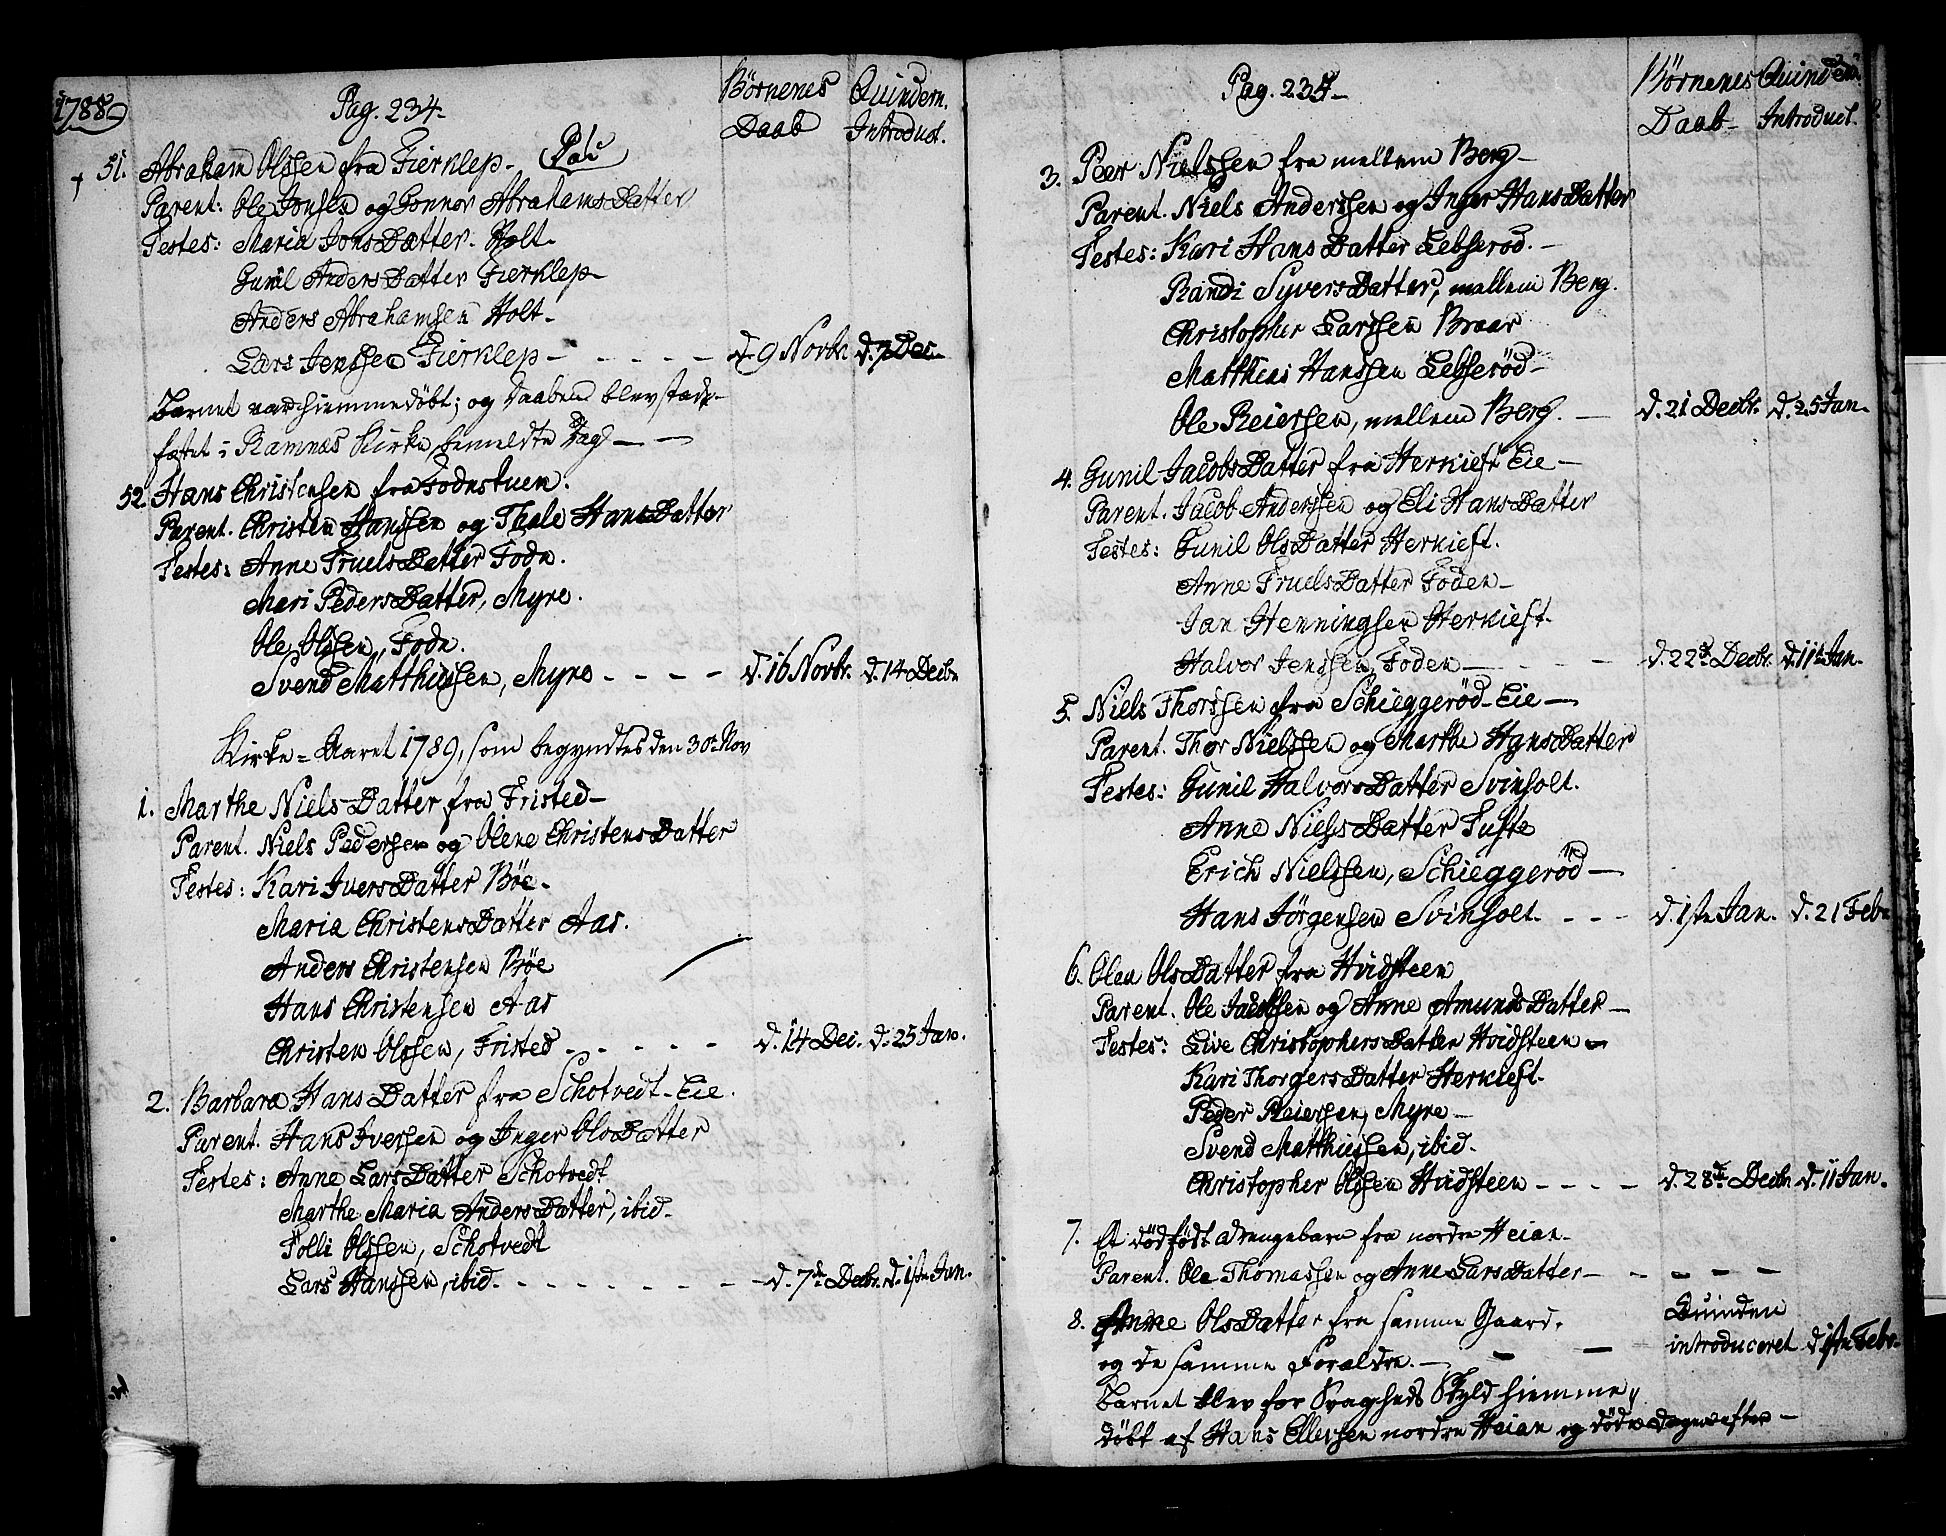 1788
Pag. 234.
Børnenes Daab
Quindern. Introduct.
51. Abraham Olssen fra Fierklep.
Parent: Ole Jonsen og Gonnor Abrahams Datter
Testes: Maria Jons Datter. Holt.
Gunil Anders Datter Fierklep
Anders Abrahamsen Holt.
Lars Jenssen Fierklep - - - - - d. 9 Novbr. d. 7 Dec.
Barnet var hiemmedøbt; og Daaben blev stad-
fæstet i Ramnæs Kirke bemeldte Dag
52. Hans Christensen fra Fodnstuen.
Parent. Christen Hanssen og Thale Hans Datter
Testes: Anne Truels Datter Fodn.
Mari Peders Datter, Myre.
Ole Olssen, Fodn.
Svend Matthiissen, Myre - - - - d. 16 Novbr. d. 14 Decbr
Kirke-Aaret 1789, som begyndtes den 30te Nov
1. Marthe Niels Datter fra Fristed
Parent. Niels Pedersen og Olene Christens Datter
Testes: Kari Ivers Datter Bøe.
Maria Christens Datter Aas.
Anders Christensen Bøe
Hans Christensen Aas
Christen Olssen, Fristed - - - - - d. 14 Dec. d. 25 Jan.
2. Barbara Hans Datter fra Schotvedt-Eie.
Parent. Hans Iversen og Inger Ols Datter
Testes: Anne Lars Datter Schotvedt
Marthe Maria Anders Datter, ibid.
Tolli Olssen, Schotvedt
Lars Hanssen, ibid. - - - - - - - d. 7de Decbr. d. 1ste Jan.
Pag. 235
Børnenes Daab
Quindern. Introduct.
3. Peer Nielssen fra mellem Berg
Parent. Niels Anderssen og Inger Hans Datter
Testes: Kari Hans Datter Lebserød.
Randi Syvers Datter, mellem Berg.
Christopher Larssen Braar
Matthias Hanssen Lebserød
Ole Reiersen, mellem Berg. - d. 21 Decbr. d. 25 Jan.
4. Gunil Jacobs Datter fra Herkieft Eie
Parent. Jacob Anderssen og Eli Hans Datter
Testes: Gunil Ols Datter Herkieft.
Anne Truels Datter Foden
Jan Henningsen Herkieft.
Halvor Jenssen, Foden - - - - d. 22de Decbr. d. 11te Jan.
5. Niels Thorssen fra Schieggerød-Eie
Parent. Thor Nielssen og Marthe Hans Datter
Testes: Gunil Halvors Datter Svinholt.
Anne Niels Datter Tufte
Erich Nielssen, Schieggerød
Hans Jørgensen Svinholt. - - - d. 1ste Jan. d. 21 Febr
6. Olea Ols Datter fra Hvidsteen
Parent. Ole Jacobsen og Anne Amunds Datter
Testes: Live Christophers Datter Hvidsteen
Kari Thorgers Datter Herkieft.
Peder Reiersen, Myre
Svend Matthiissen, ibid.
Christopher Olssen Hvidsteen - - - - d. 28de Decbr d. 11 Jan.
7. Et dødfødt Drengebarn fra nordre Heian
Parent. Ole Thomassen og Anne Lars Datter - - - - -
8. Anne Ols Datter fra samme Gaard.
og de samme Forældre.
Quinden introduceret d. 1ste Febr.
Barnet blev for Svagheds Skyld hiemme
døbt af Hans Ellefsen nordre Heian og døde dagen efter